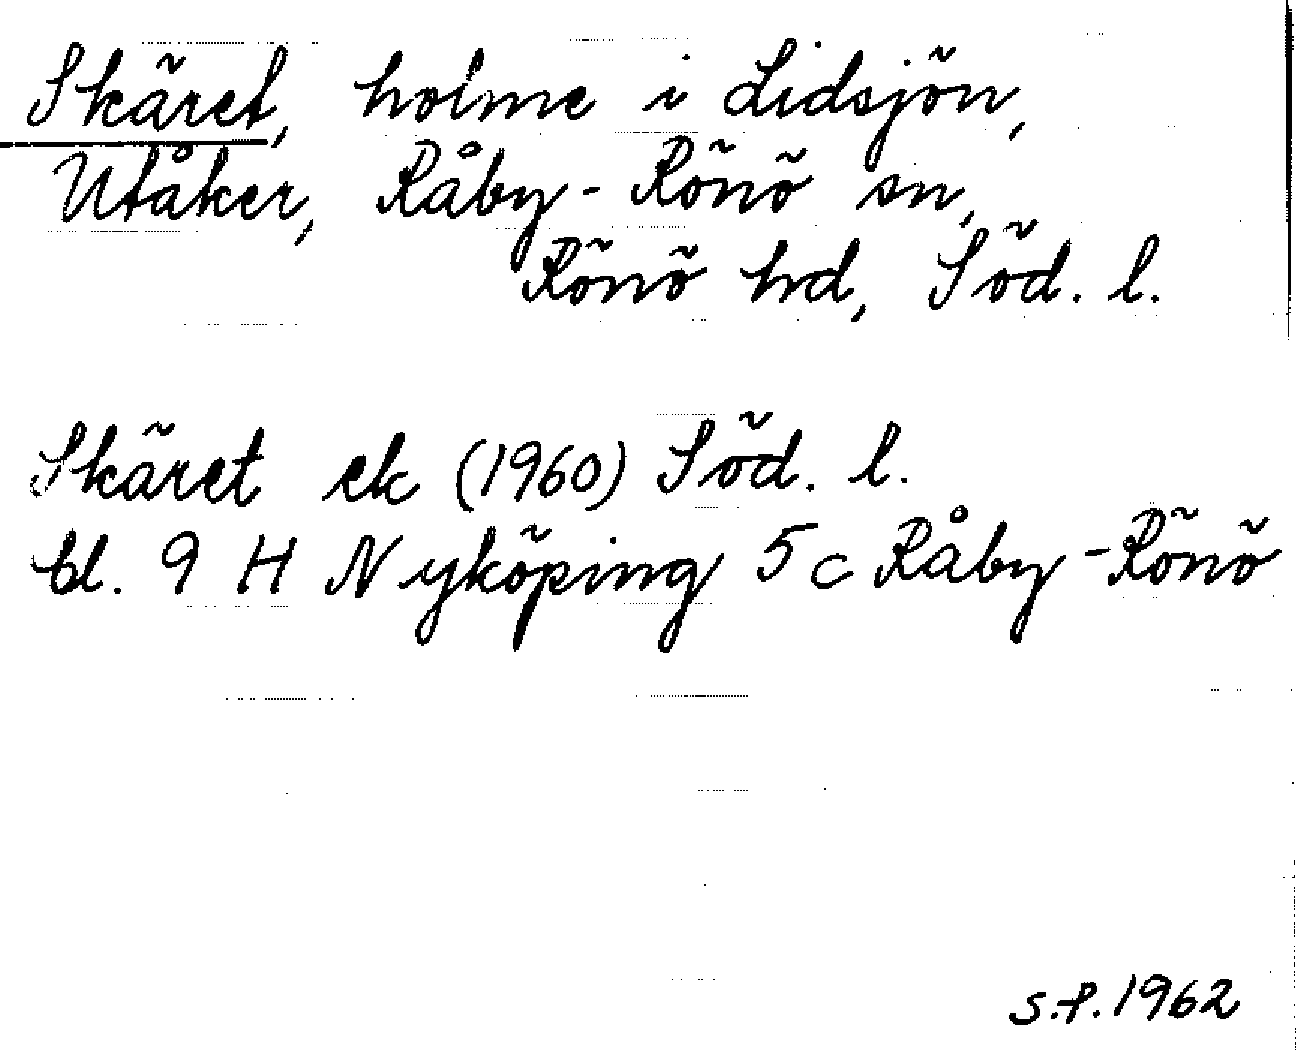 Skäret, holme i Lidsjön,
Utåker, Råby-Rönö sn,
Rönö hd, Söd. l.
Skäret ek (1960) Söd. l.
bl. 9 H Nyköping 5c Råby-Rönö
s.f. 1962